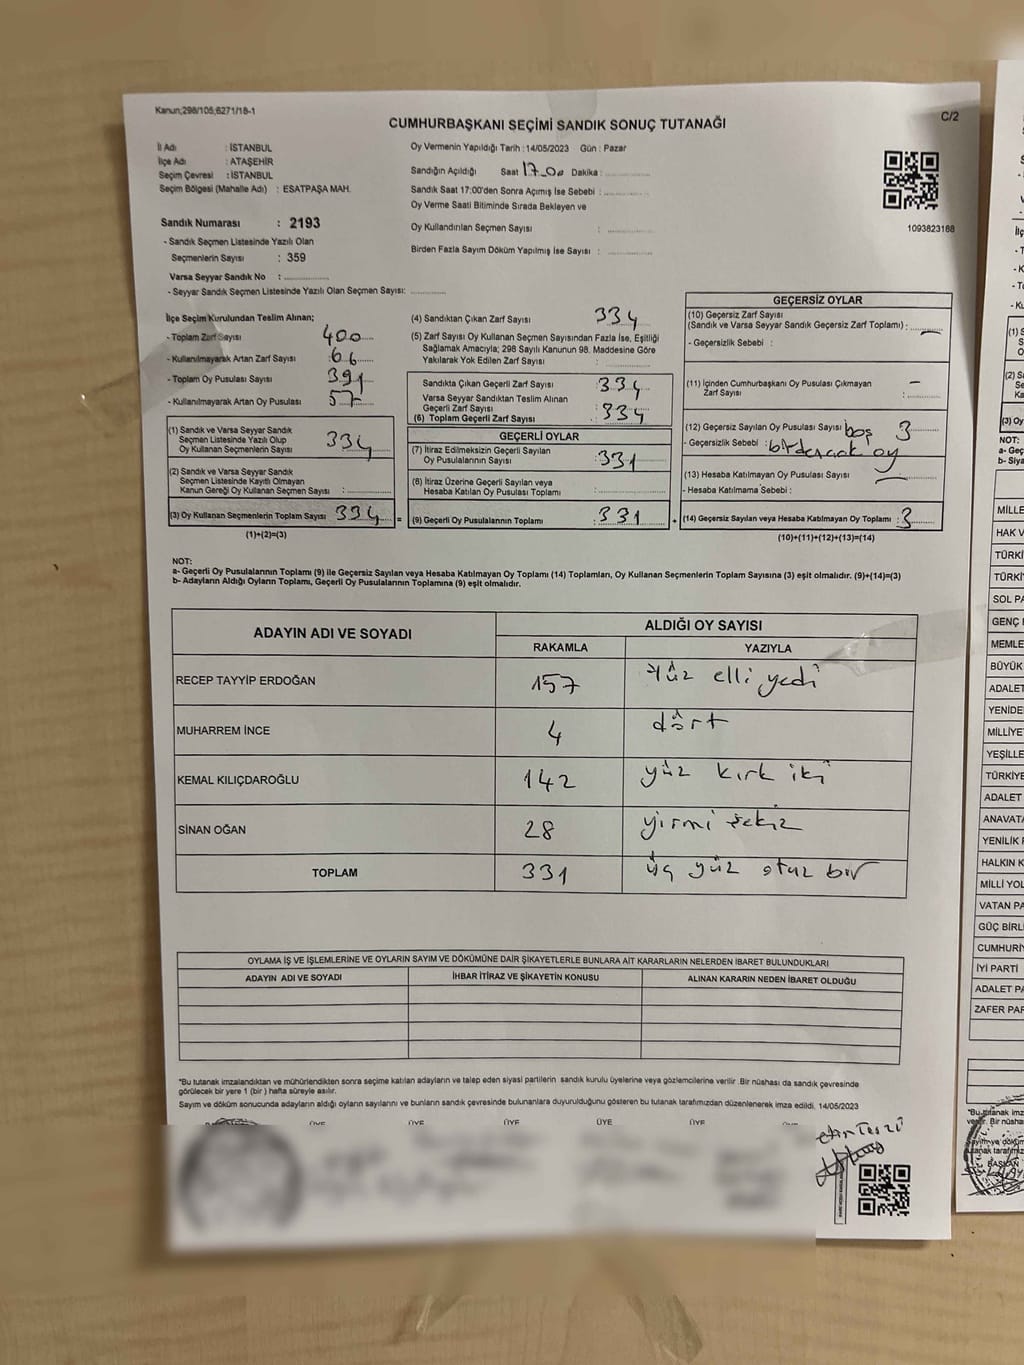 Kanun;298/105;6271/18-1
C/2
CUMHURBAŞKANI SEÇİMİ SANDIK SONUÇ TUTANAĞI
İl Adı : İSTANBUL
İlçe Adı : ATAŞEHİR
Seçim Çevresi : İSTANBUL
Seçim Bölgesi (Mahalle Adı) : ESATPAŞA MAH.
Sandık Numarası : 2193
- Sandık Seçmen Listesinde Yazılı Olan
Seçmenlerin Sayısı : 359
Varsa Seyyar Sandık No : ............
- Seyyar Sandık Seçmen Listesinde Yazılı Olan Seçmen Sayısı: ............
Oy Vermenin Yapıldığı Tarih :14/05/2023 Gün : Pazar
Sandığın Açıldığı Saat 17.00 Dakika : ............
Sandık Saat 17:00'den Sonra Açımış İse Sebebi : ............
Oy Verme Saati Bitiminde Sırada Bekleyen ve
Oy Kullandırılan Seçmen Sayısı : ............
Birden Fazla Sayım Döküm Yapılmış İse Sayısı : ............
1093823188
İlçe Seçim Kurulundan Teslim Alınan;
- Toplam Zarf Sayısı : 400
- Kullanılmayarak Artan Zarf Sayısı : 66
- Toplam Oy Pusulası Sayısı : 391
- Kullanılmayarak Artan Oy Pusulası : 57
(1) Sandık ve Varsa Seyyar Sandık
Seçmen Listesinde Yazılı Olup
Oy Kullanan Seçmenlerin Sayısı 334
(2) Sandık ve Varsa Seyyar Sandık
Seçmen Listesinde Kayıtlı Olmayan
Kanun Gereği Oy Kullanan Seçmen Sayısı : ............
(3) Oy Kullanan Seçmenlerin Toplam Sayısı 334 =
(1)+(2)=(3)
(4) Sandıktan Çıkan Zarf Sayısı : 334
(5) Zarf Sayısı Oy Kullanan Seçmen Sayısından Fazla İse, Eşitliği
Sağlamak Amacıyla; 298 Sayılı Kanunun 98. Maddesine Göre
Yakılarak Yok Edilen Zarf Sayısı : ............
Sandıkta Çıkan Geçerli Zarf Sayısı : 334
Varsa Seyyar Sandıktan Teslim Alınan
Geçerli Zarf Sayısı : 334
(6) Toplam Geçerli Zarf Sayısı :
GEÇERLİ OYLAR
(7) İtiraz Edilmeksizin Geçerli Sayılan
Oy Pusulalarının Sayısı : 331
(8) İtiraz Üzerine Geçerli Sayılan veya
Hesaba Katılan Oy Pusulası Toplamı : ............
(9) Geçerli Oy Pusulalarının Toplamı : 331 +
GEÇERSİZ OYLAR
(10) Geçersiz Zarf Sayısı
(Sandık ve Varsa Seyyar Sandık Geçersiz Zarf Toplamı) : —
- Geçersizlik Sebebi :
(11) İçinden Cumhurbaşkanı Oy Pusulası Çıkmayan
Zarf Sayısı : —
(12) Geçersiz Sayılan Oy Pusulası Sayısı boş 3
- Geçersizlik Sebebi : oy
(13) Hesaba Katılmayan Oy Pusulası Sayısı —
- Hesaba Katılmama Sebebi :
(14) Geçersiz Sayılan veya Hesaba Katılmayan Oy Toplamı : 3
(10)+(11)+(12)+(13)=(14)
NOT:
a- Geçerli Oy Pusulalarının Toplamı (9) ile Geçersiz Sayılan veya Hesaba Katılmayan Oy Toplamı (14) Toplamları, Oy Kullanan Seçmenlerin Toplam Sayısına (3) eşit olmalıdır. (9)+(14)=(3)
b- Adayların Aldığı Oyların Toplamı, Geçerli Oy Pusulalarının Toplamına (9) eşit olmalıdır.
ADAYIN ADI VE SOYADI
ALDIĞI OY SAYISI
RAKAMLA YAZIYLA
RECEP TAYYİP ERDOĞAN 157 Yüz elli yedi
MUHARREM İNCE 4 dört
KEMAL KILIÇDAROĞLU 142 yüz kırk iki
SİNAN OĞAN 28 yirmi sekiz
TOPLAM 331 üç yüz otuz bir
OYLAMA İŞ VE İŞLEMLERİNE VE OYLARIN SAYIM VE DÖKÜMÜNE DAİR ŞİKAYETLERLE BUNLARA AİT KARARLARIN NELERDEN İBARET BULUNDUKLARI
ADAYIN ADI VE SOYADI İHBAR İTİRAZ VE ŞİKAYETİN KONUSU ALINAN KARARIN NEDEN İBARET OLDUĞU
*Bu tutanak imzalandıktan ve mühürlendikten sonra seçime katılan adayların ve talep eden siyasi partilerin sandık kurulu üyelerine veya gözlemcilerine verilir .Bir nüshası da sandık çevresinde
görülecek bir yere 1 (bir ) hafta süreyle asılır.
Sayım ve döküm sonucunda adayların aldığı oyların sayılarını ve bunların sandık çevresinde bulunanlara duyurulduğunu gösteren bu tutanak tarafımızdan düzenlenerek imza edildi. 14/05/2023
ÜYE ÜYE ÜYE ÜYE ÜYE
MİLLE
HAK V
TÜRKİ
TÜRKİY
SOL PA
GENÇ
MEMLE
BÜYÜK
ADALET
YENİDE
MİLLİYE
YEŞİLLE
TÜRKİYE
ADALET
ANAVATA
YENİLİK
HALKIN K
MİLLİ YOL
VATAN PA
GÜÇ BİRLİ
CUMHURİY
İYİ PARTİ
ADALET PA
ZAFER PAR
BAŞKAN